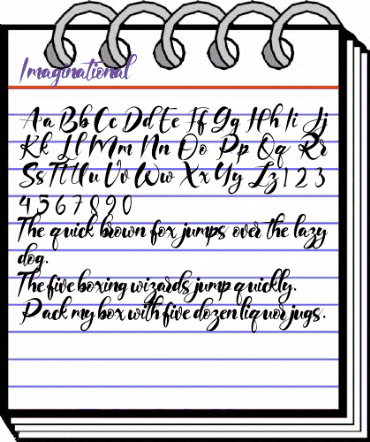 Imaginational
Aa Bb Cc Dd Ee Ff Gg Hh Ii Jj
Kk Ll Mm Nn Oo Pp Qq Rr
Ss Tt Uu Vv Ww Xx Yy Zz 1 2 3
4 5 6 7 8 9 0
The quick brown fox jumps over the lazy
dog.
The five boxing wizards jump quickly.
Pack my box with five dozen liquor jugs.